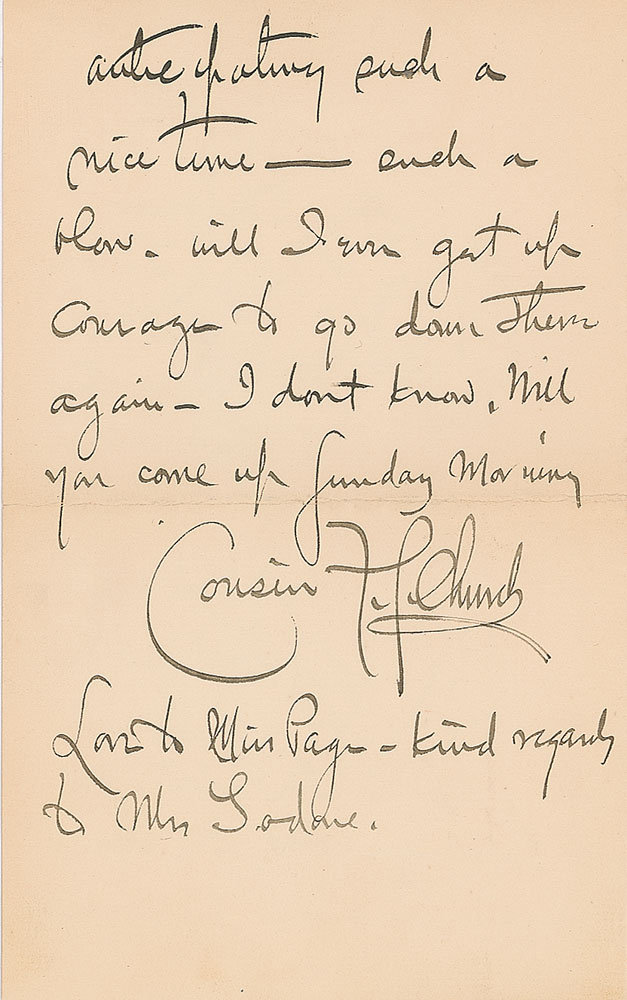 anticipating such a
nice time — such a
blow. will I ever get up
courage to go down there
again — I don't know. Will
you come up Sunday Morning
Cousin F. S. Church
Love to Miss Page - kind regards
to Mrs